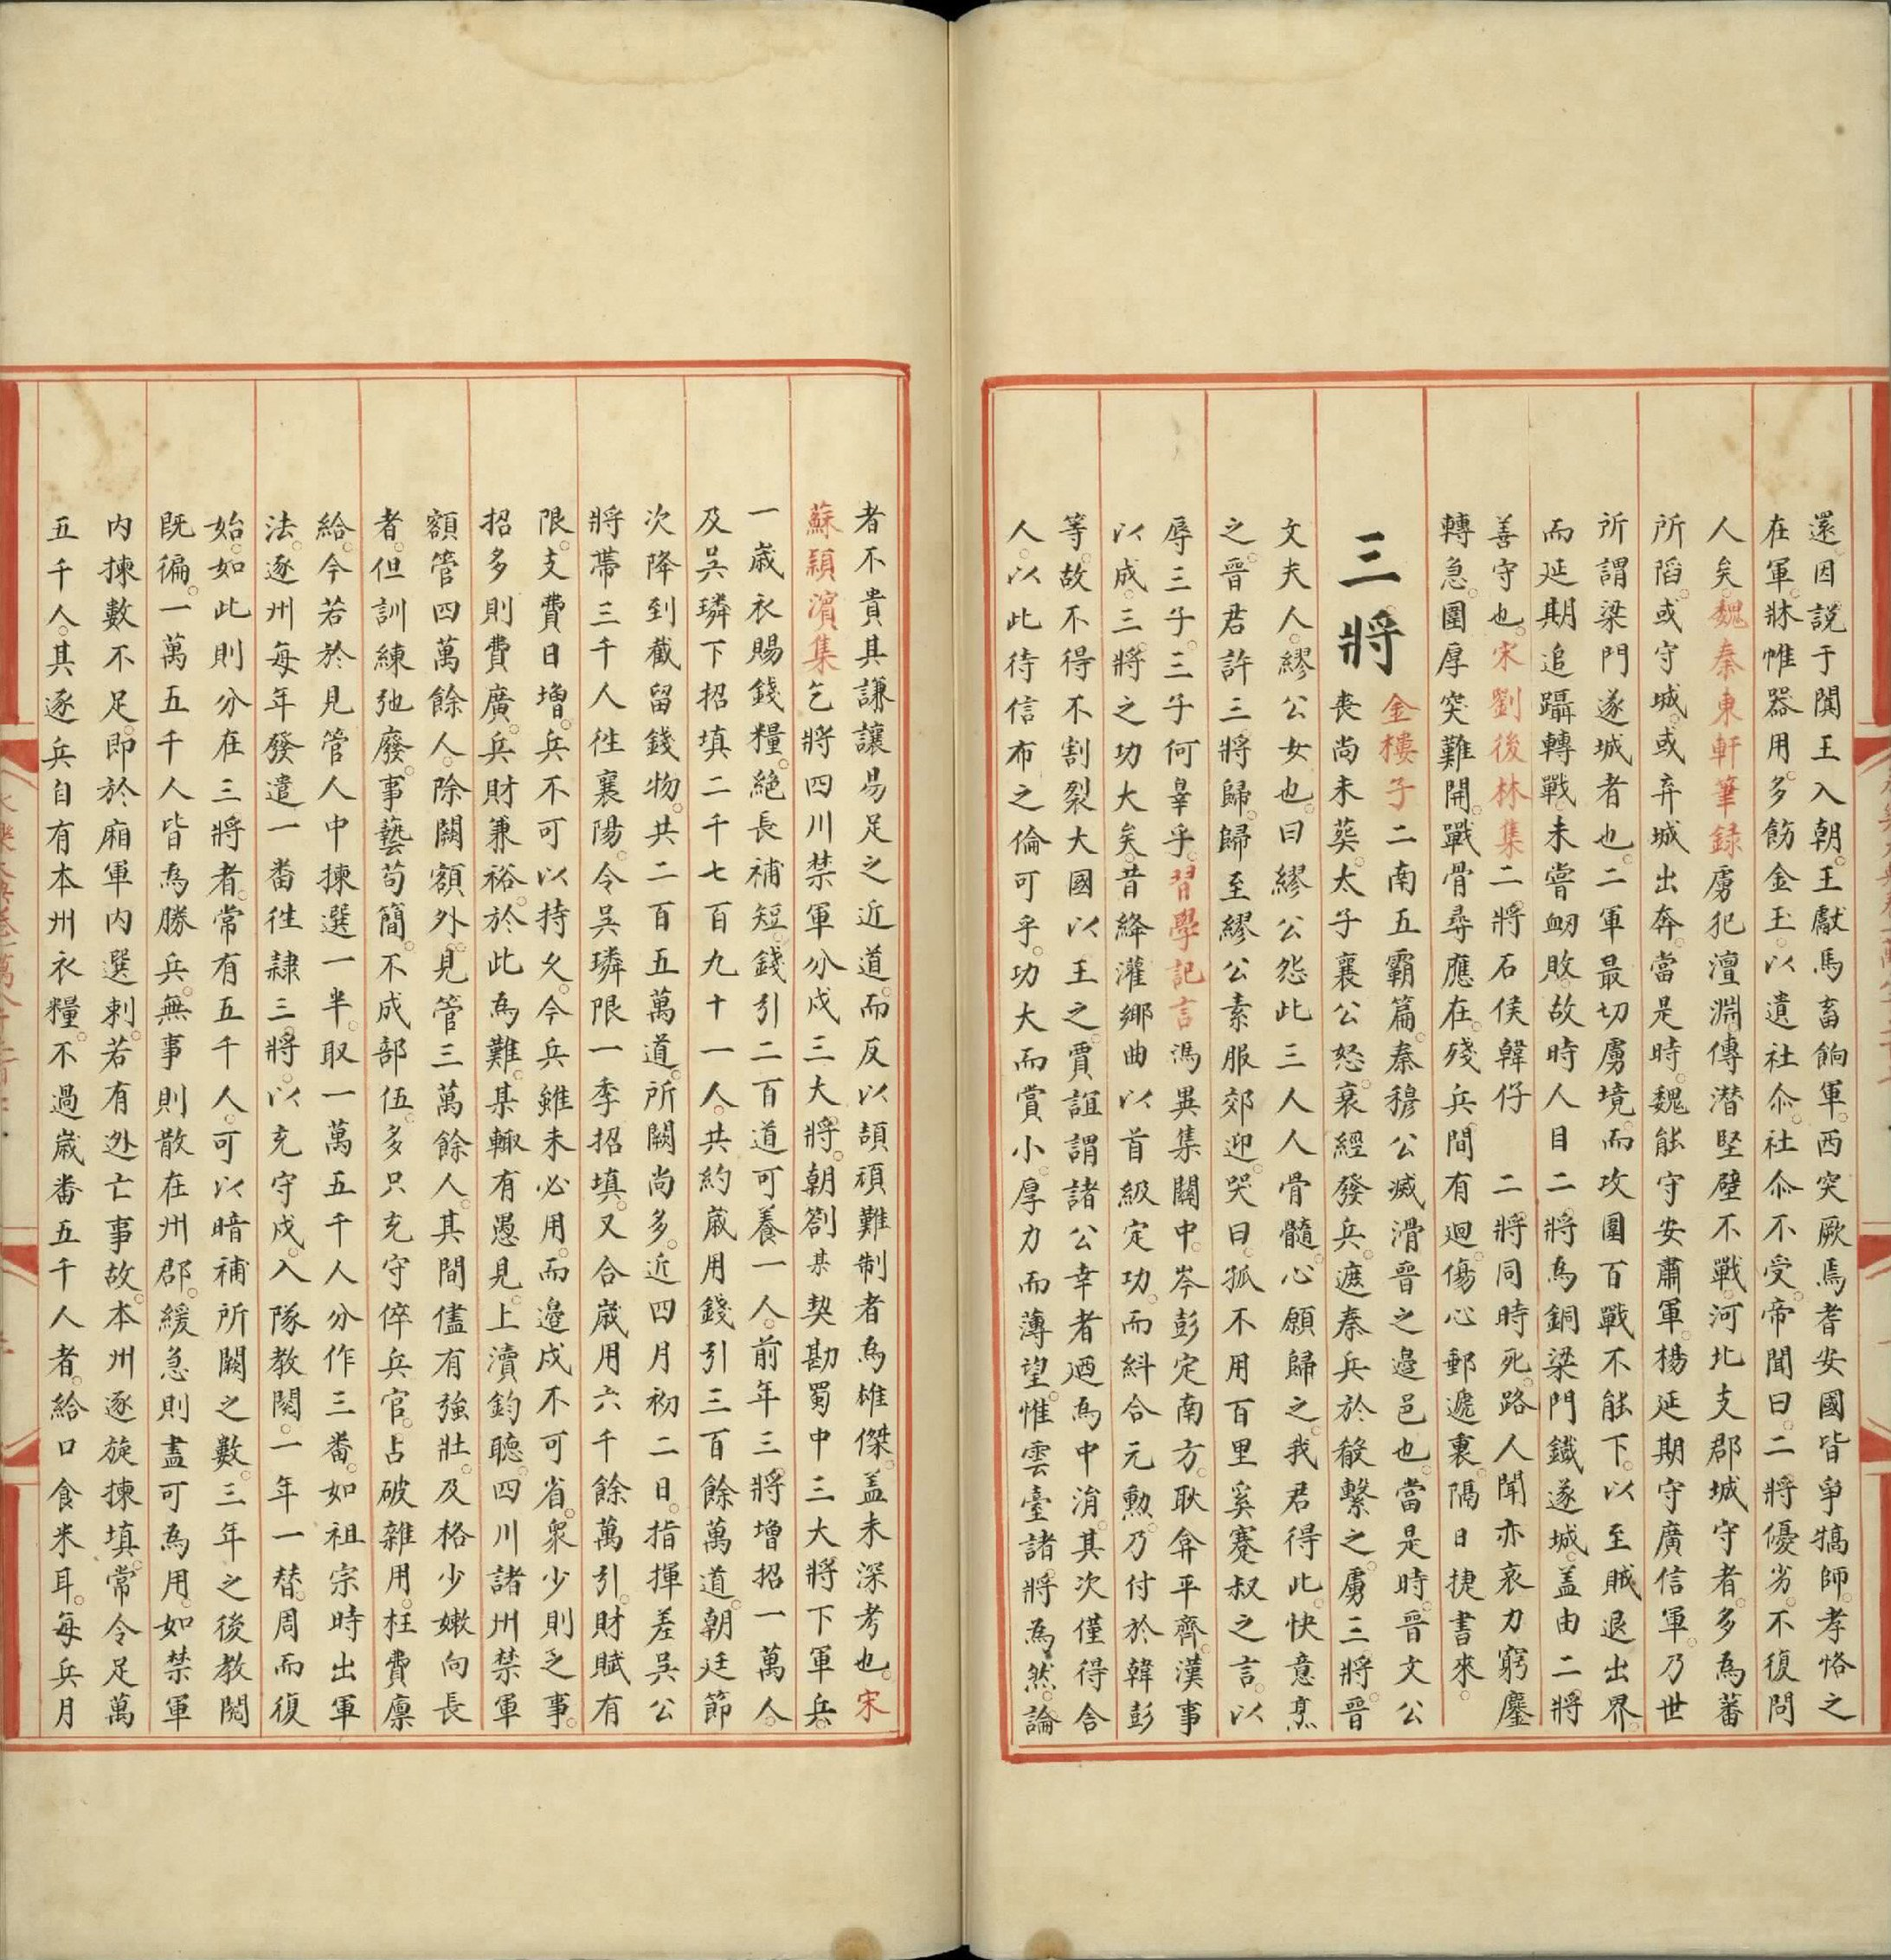 還因說于闐王入朝王獻馬畜餉軍西突厥焉耆安國皆爭犒師孝恪之
在軍牀帷器用多飭金玉以遺社尒社尒不受帝聞曰二將優劣不復問
人矣魏泰東軒筆録虜犯澶淵傳潜堅壁不戰河北支郡城守者多為蕃
所䧟或守城或弃城出奔當是時魏能守安肅軍楊延期守廣信軍乃世
所謂梁門遂城者也二軍最切虜境而攻圍百戰不能下以至賊退出界
而延期追躡轉戰未嘗衂敗故時人目二將為銅梁門鐵遂城盖由二將
善守也宋劉後林集二將石侯韓仔 二將同時死路人聞亦哀力窮鏖
轉急圍厚突難開戰骨尋應在殘兵間有迴傷心郵遞裏隔日捷書來
三將
金樓子二南五霸篇秦穆公滅滑晉之邊邑也當是時晉文公
喪尚未葬太子襄公怒衰絰發兵遮秦兵於殽繫之虜三將晉
文夫人繆公女也曰繆公怨此三人人骨髓心願歸之我君得此快意烹
之晉君許三將歸歸至繆公素服郊迎哭曰孤不用百里奚蹇叔之言以
辱三子三子何辠乎習學記言馮異集關中岑彭定南方耿弇平齊漢事
以成三將之功大矣昔絳灌鄉曲以首級定功而紏合元勲乃付於韓彭
等故不得不割裂大國以王之賈誼謂諸公幸者廼為中涓其次僅得舍
人以此待信布之倫可乎功大而賞小厚力而薄望惟雲臺諸將為然論
者不貴其謙讓易足之近道而反以頡頏難制者為雄傑盖未深考也宋
蘇潁濵集乞將四川禁軍分戍三大將朝劄某契勘蜀中三大將下軍兵
一歲衣賜錢糧絶長補短錢引二百道可養一人前年三將增招一萬人
及吳璘下招填二千七百九十一人共約歲用錢引三百餘萬道朝廷節
次降到截留錢物共二百五萬道所闕尚多近四月初二日指揮差吳公
將帶三千人徃襄陽令吳璘限一季招填又合歲用六千餘萬引財賦有
限支費日增兵不可以持久今兵雖未必用而邊戍不可省衆少則乏事
招多則費廣兵財兼裕於此為難某輙有愚見上瀆鈞聽四川諸州禁軍
額管四萬餘人除闕額外見管三萬餘人其間儘有強壯及格少嫩向長
者但訓練弛廢事藝苟簡不成部伍多只充守倅兵官占破雜用枉費廪
給今若於見管人中揀選一半取一萬五千人分作三番如祖宗時出軍
法逐州每年發遣一番徃隷三將以充守戍入隊教閱一年一替周而復
始如此則分在三將者常有五千人可以暗補所闕之數三年之後教閲
既徧一萬五千人皆為勝兵無事則散在州郡緩急則盡可為用如禁軍
内揀數不足即於廂軍内選剌若有逃亡事故本州逐旋揀填常令足萬
五千人其逐兵自有本州衣糧不過歲番五千人者給口食米耳每兵月